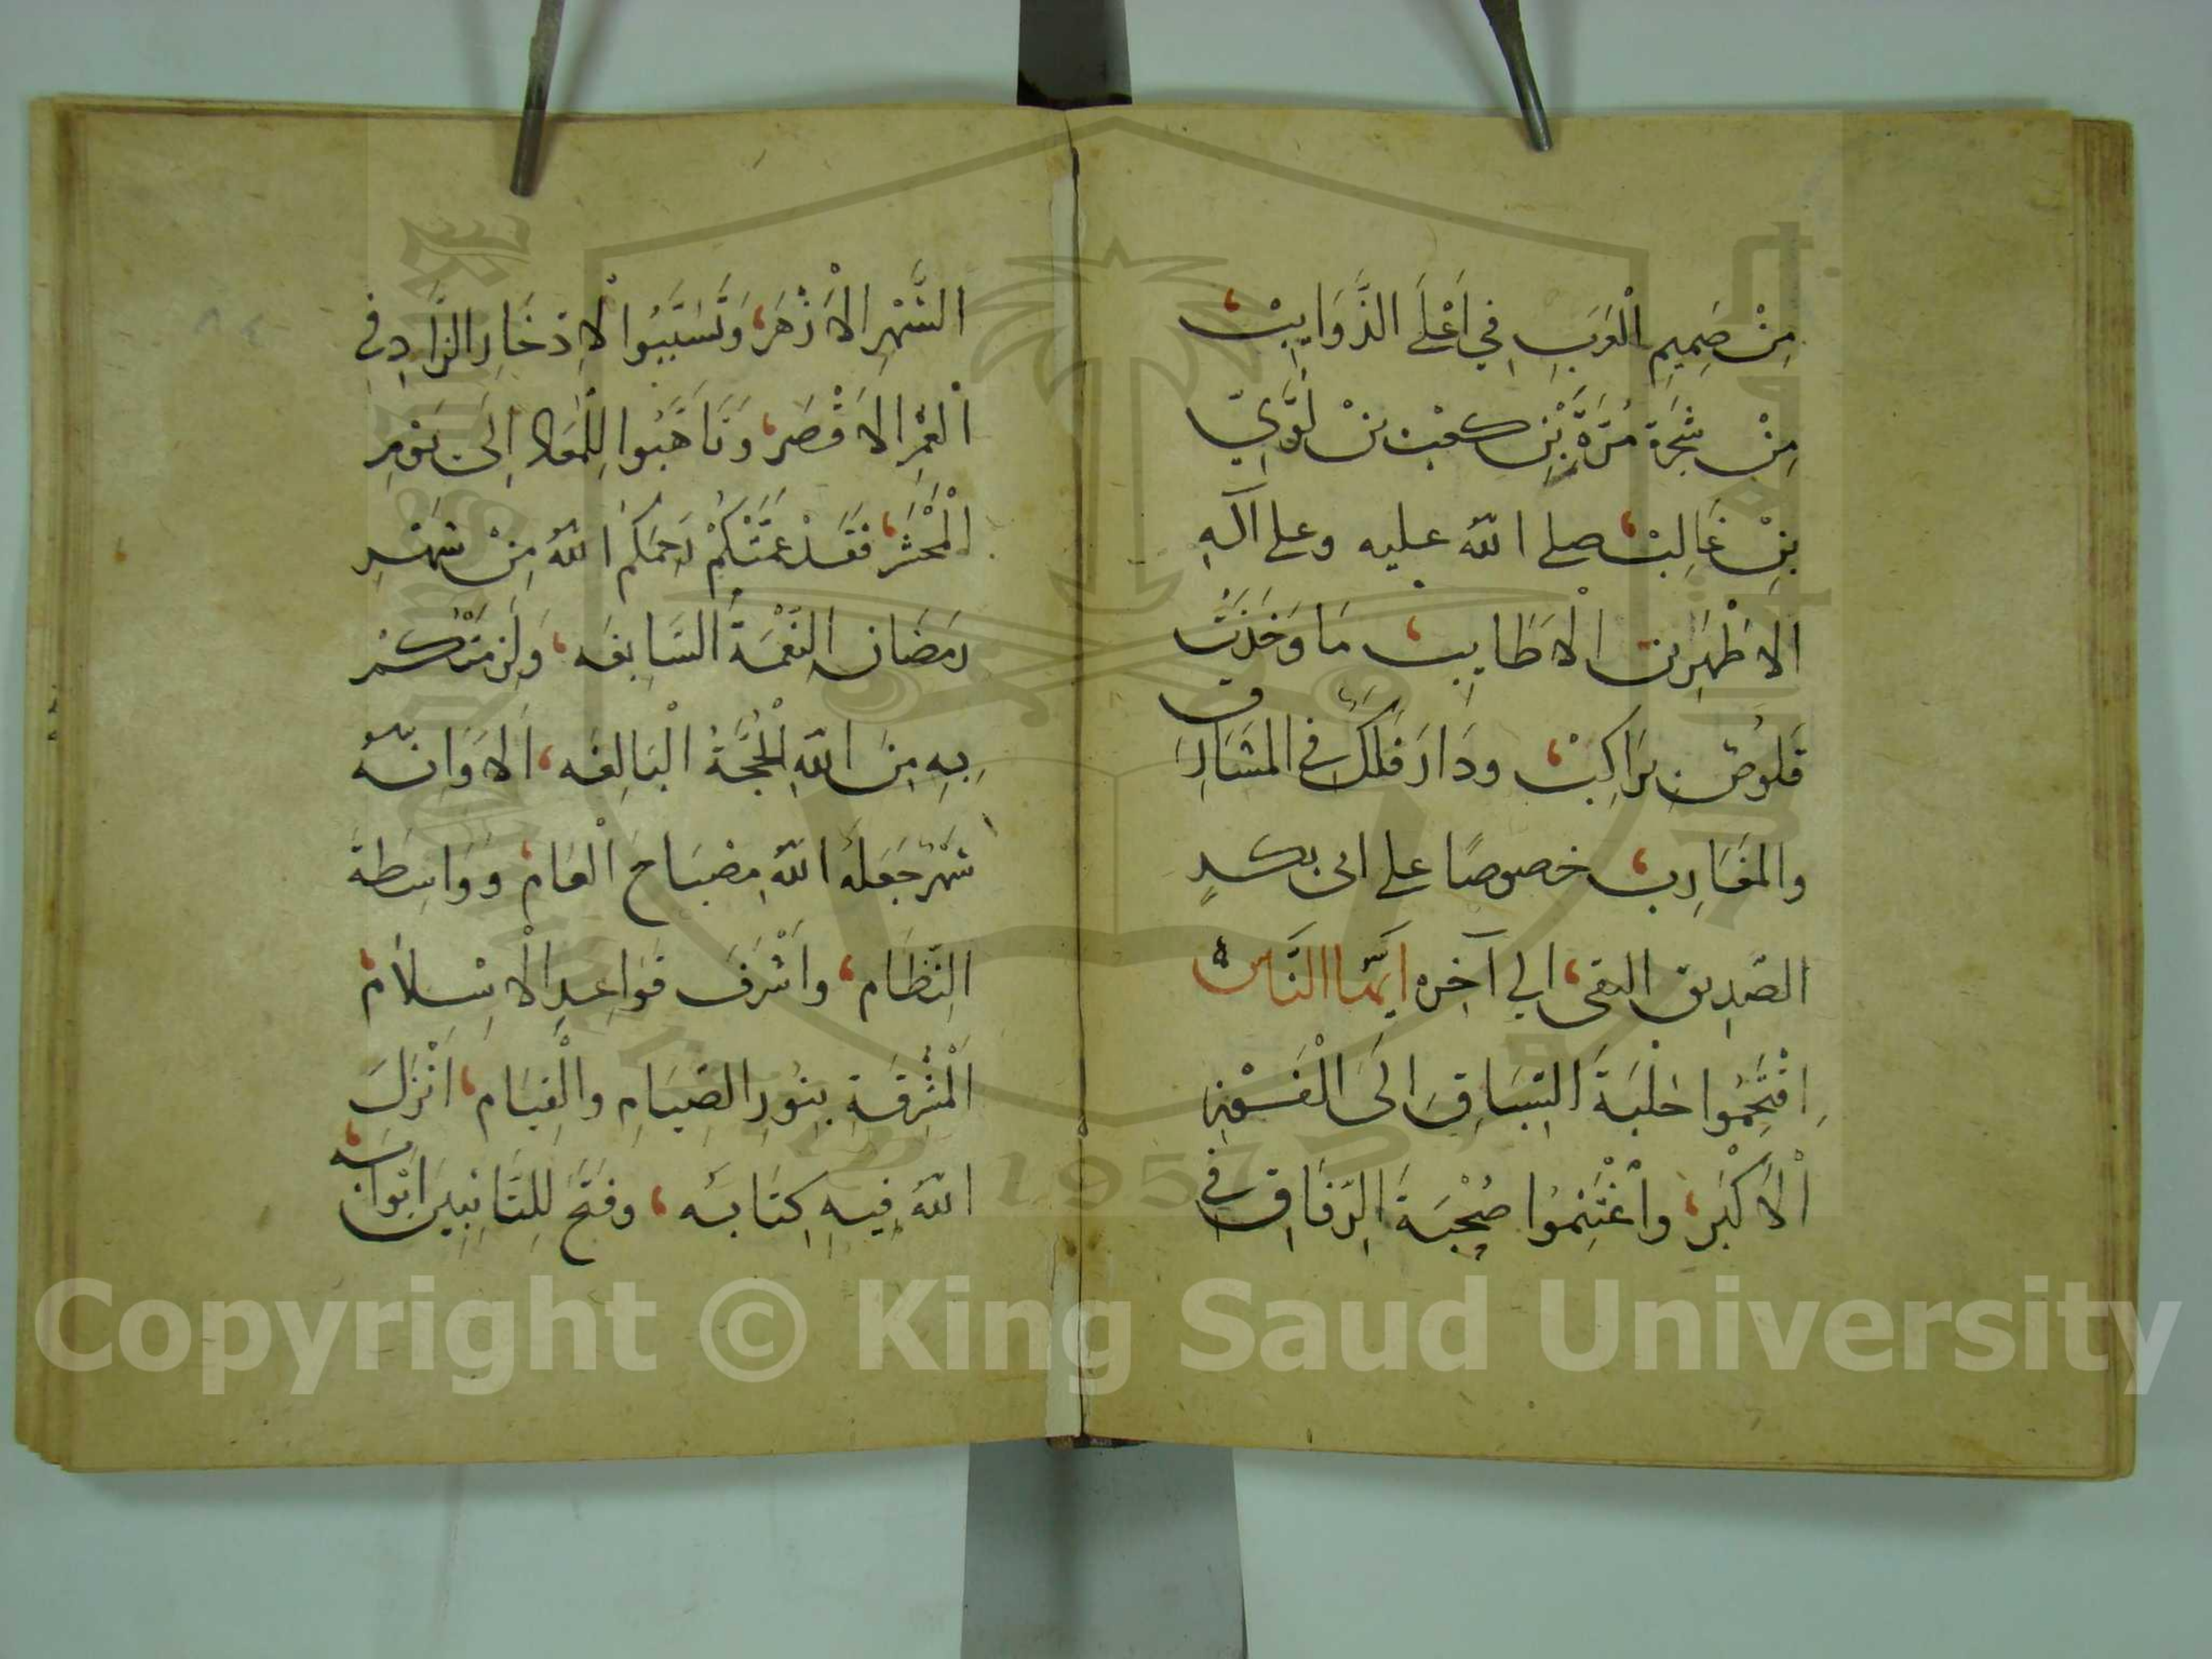 مِنْ صَمِيمِ الْعَرَبِ فِي أَعْلَى الذَّوَايِبْ،
مِنْ شَجَرَةِ مُرَّةَ بْنِ كعْبِ بْنِ لُؤَيِّ
بْنِ غَالِبْ، صلى اللهُ عليه وعلى آلهِ
الاَطْهَرِينَ الْاَطَايِبْ، مَا وَخَدَتْ
قَلُوصٌ بِرَاكِبْ، ودَارَ فَلَكٌ في المشَارِق
والمغَارِبْ، خصوصًا على ابى بكرٍ
الصّدِيقِ التقى، الى آخِره ايُّهَا النَّاسُ
اِقْتَحِمُوا حَلْبَةَ السِّبَاقِ اِلَى الْفَوْزِ
الْاَكْبَرِ، واغْتَنِمُوا صُحْبَةَ الرّفَاقِ فِي
الشَّهْرِ الْاَزْهَرِ، وَتَسَبَّبُوا لْاِدْخَارِ الزَّادِ في
الْعُمْرِ الاَقْصَرِ، وَتَأَهَّبُوا لِلْمَعَادِ اِلَى يَوْمِ
الْمَحْشَرِ، فَقَدْ عَمَّتْكُمْ رَحِمَكُمُ اللهُ مِنْ شَهْرِ
رَمَضَانَ النّعْمَةُ السَّابِغَه، وَلَزِمَتْكُمْ
بِهِ مِنَ اللهِ الْحُجَّةُ الْبَالِغَه، اَلا وَاِنَّهُ
شَهْرٌ جَعَلَهُ اللهُ مِصْبَاحَ الْعَامْ، وَوَاسِطَةَ
النّظَامْ، واَشْرَفَ قَوَاعِدِ الْاِسْلاَمْ،
الْمُشْرِقَةِ بِنُورِ الصِّيَامِ والْقِيَامْ، اَنْزَلَ
اللهُ فِيهِ كِتَابَه، وفَتَحَ لِلتَّائِبِينَ اَبْوَابَه،
Copyright © King Saud University
1957